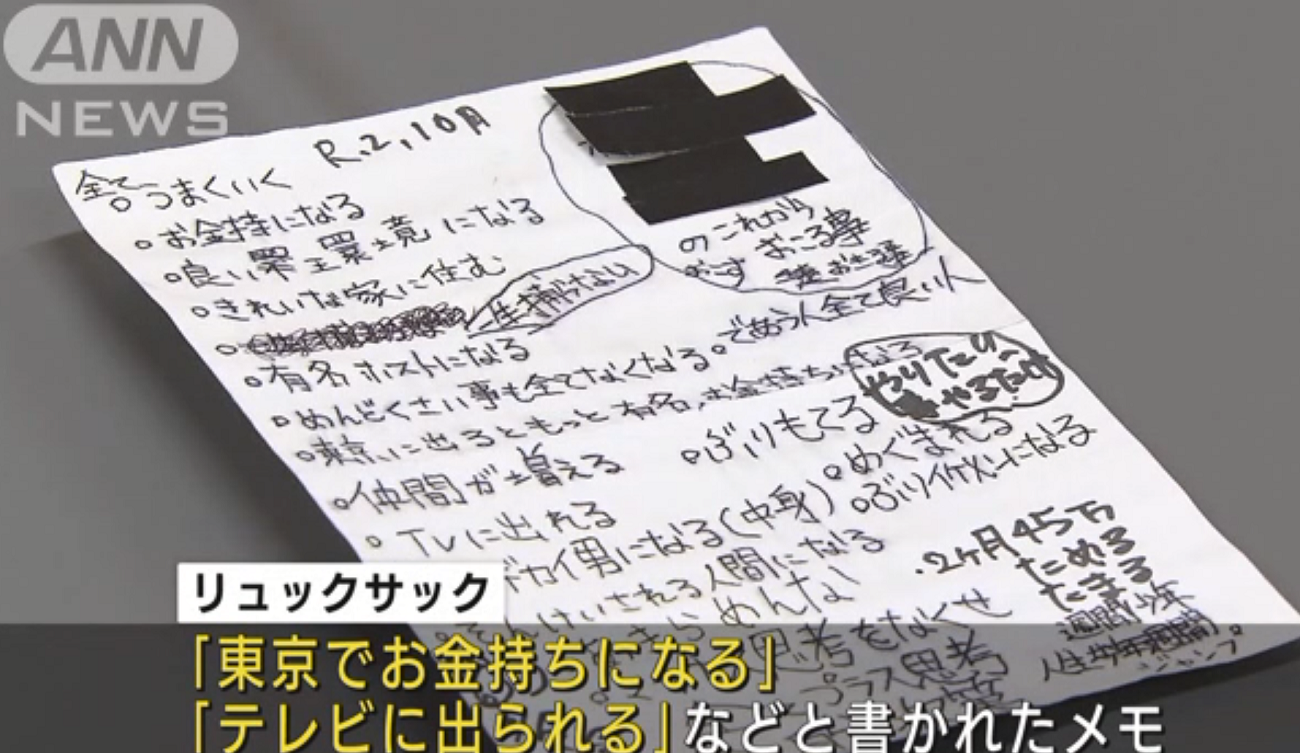 ANN
NEWS
R.2,10月
全てうまくいく
お金持になる
良い 環境 になる
きれいな家に住む
一生捕まらない
有名ホストになる
めんどくさい事も全てなくなる
であう人全て良い人
東京に出るともっと有名、お金持ちになる
仲間が増える
TVに出れる
デカイ男になる(中身)
そんけいされる人間になる
のこれから
おこる事
やりたい
やるだけ
ぶりもてる
めぐまれる
ぶりイケメンになる
.2ヶ月45万
ためる
たまる
週間少年
ジャンプ
あきらめんな
思考をなくせ
プラス思考
リュックサック
「東京でお金持ちになる」
「テレビに出られる」などと書かれたメモ